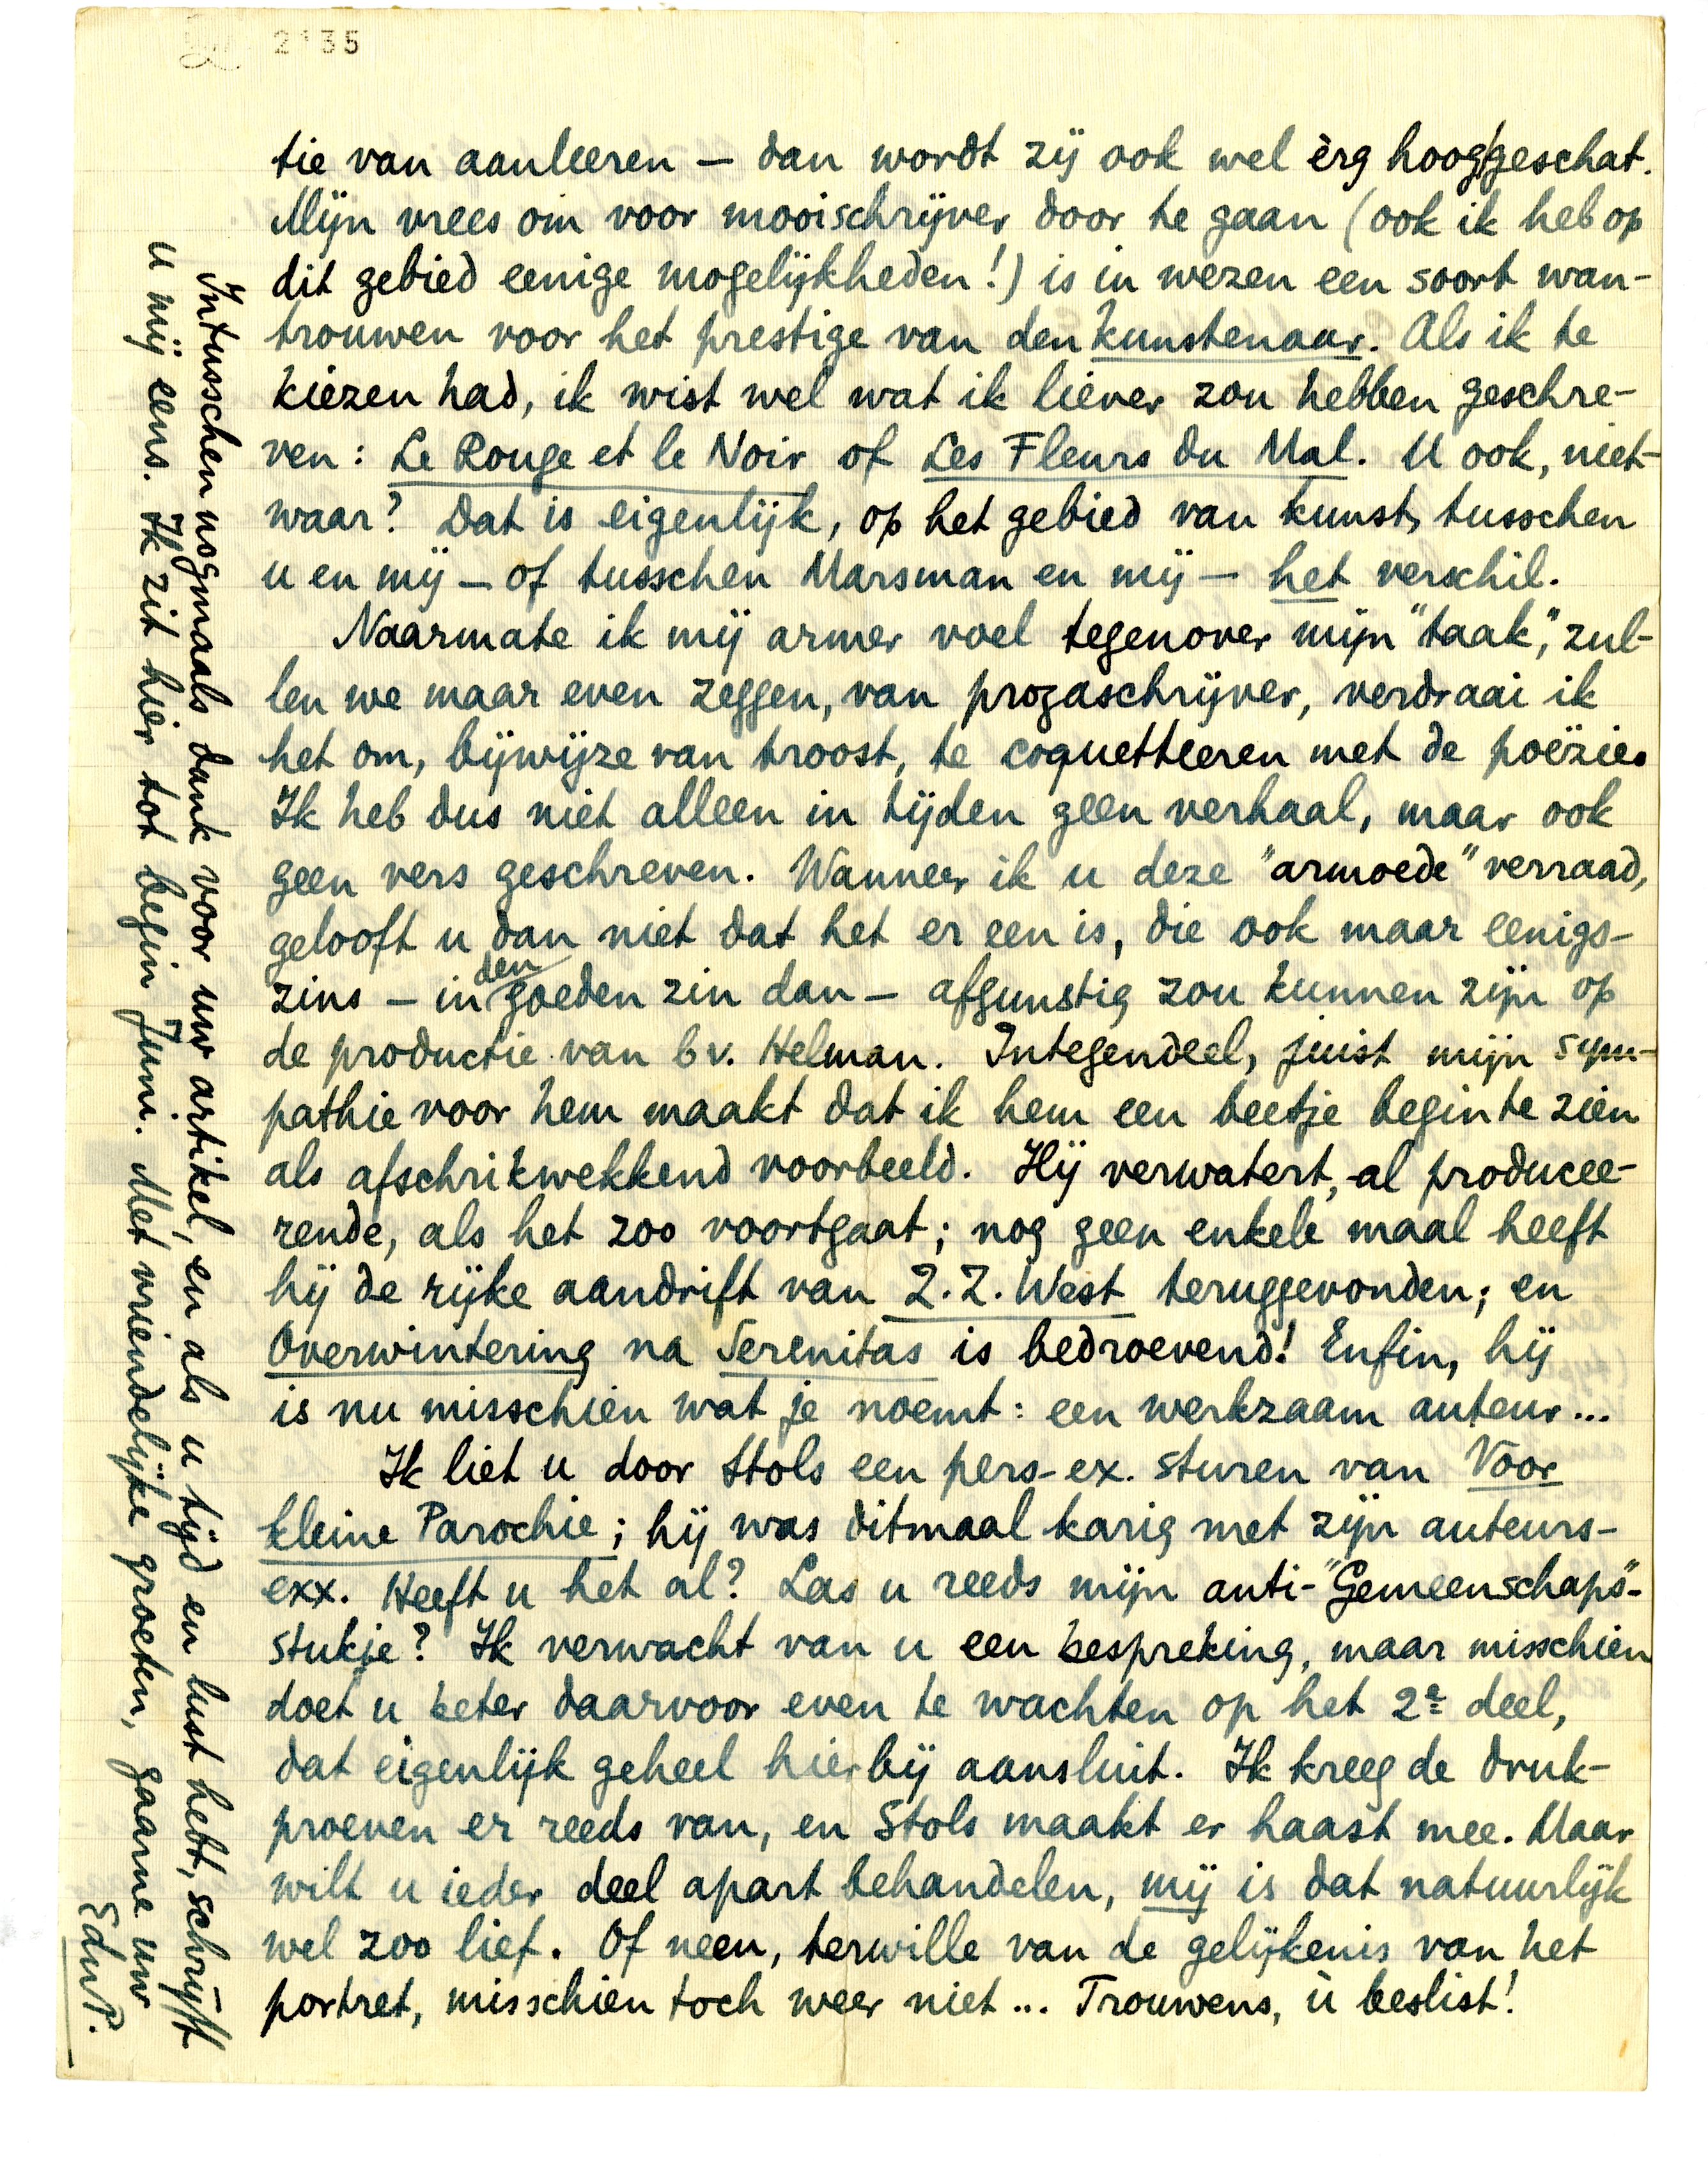 2135
tie van aanleeren — dan wordt zij ook wel èrg hoog/geschat.
Mijn vrees om voor mooischrijver door te gaan (ook ik heb op
dit gebied eenige mogelijkheden!) is in wezen een soort wan-
trouwen voor het prestige van den kunstenaar. Als ik te
kiezen had, ik wist wel wat ik liever zou hebben geschre-
ven: Le Rouge et le Noir of Les Fleurs du Mal. U ook, niet-
waar? Dat is eigenlijk, op het gebied van kunst, tusschen
u en mij — of tusschen Marsman en mij — het verschil.
Naarmate ik mij armer voel tegenover mijn "taak", zul-
len we maar even zeggen, van prozaschrijver, verdraai ik
het om, bijwijze van troost, te coquetteeren met de poëzie.
Ik heb dus niet alleen in tijden geen verhaal, maar ook
geen vers geschreven. Wanneer ik u deze "armoede" verraad,
gelooft u dan niet dat het er een is, die ook maar eenigs-
zins — in den goeden zin dan — afgunstig zou kunnen zijn op
de productie van bv. Helman. Integendeel, juist mijn sym-
pathie voor hem maakt dat ik hem een beetje begin te zien
als afschrikwekkend voorbeeld. Hij verwatert, al producee-
rende, als het zoo voortgaat; nog geen enkele maal heeft
hij de rijke aandrift van Z.Z. West teruggevonden; en
Overwintering na Serenitas is bedroevend! Enfin, hij
is nu misschien wat je noemt: een werkzaam auteur...
Ik liet u door Stols een pers-ex. sturen van Voor
kleine Parochie; hij was ditmaal karig met zijn auteurs-
exx. Heeft u het al? Las u reeds mijn anti-"Gemeenschaps"-
stukje? Ik verwacht van u een bespreking, maar misschien
doet u beter daarvoor even te wachten op het 2e deel,
dat eigenlijk geheel hierbij aansluit. Ik kreeg de druk-
proeven er reeds van, en Stols maakt er haast mee. Maar
wilt u ieder deel apart behandelen, mij is dat natuurlijk
wel zoo lief. Of neen, terwille van de gelijkenis van het
portret, misschien toch weer niet... Trouwens, ù beslist!
Intusschen nogmaals dank voor uw artikel, en als u tijd en lust hebt, schrijft
u mij eens. Ik zit hier tot begin Juni. Met vriendelijke groeten, gaarne uw
EduP.